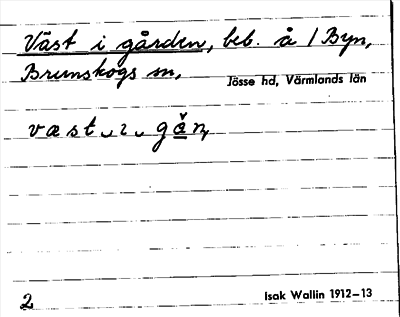 Väst i gården, beb. å /Byn,
Brunskogs sn,
Jösse hd, Värmlands län
væst ˬıˬ gǎn,
2
Isak Wallin 1912–13